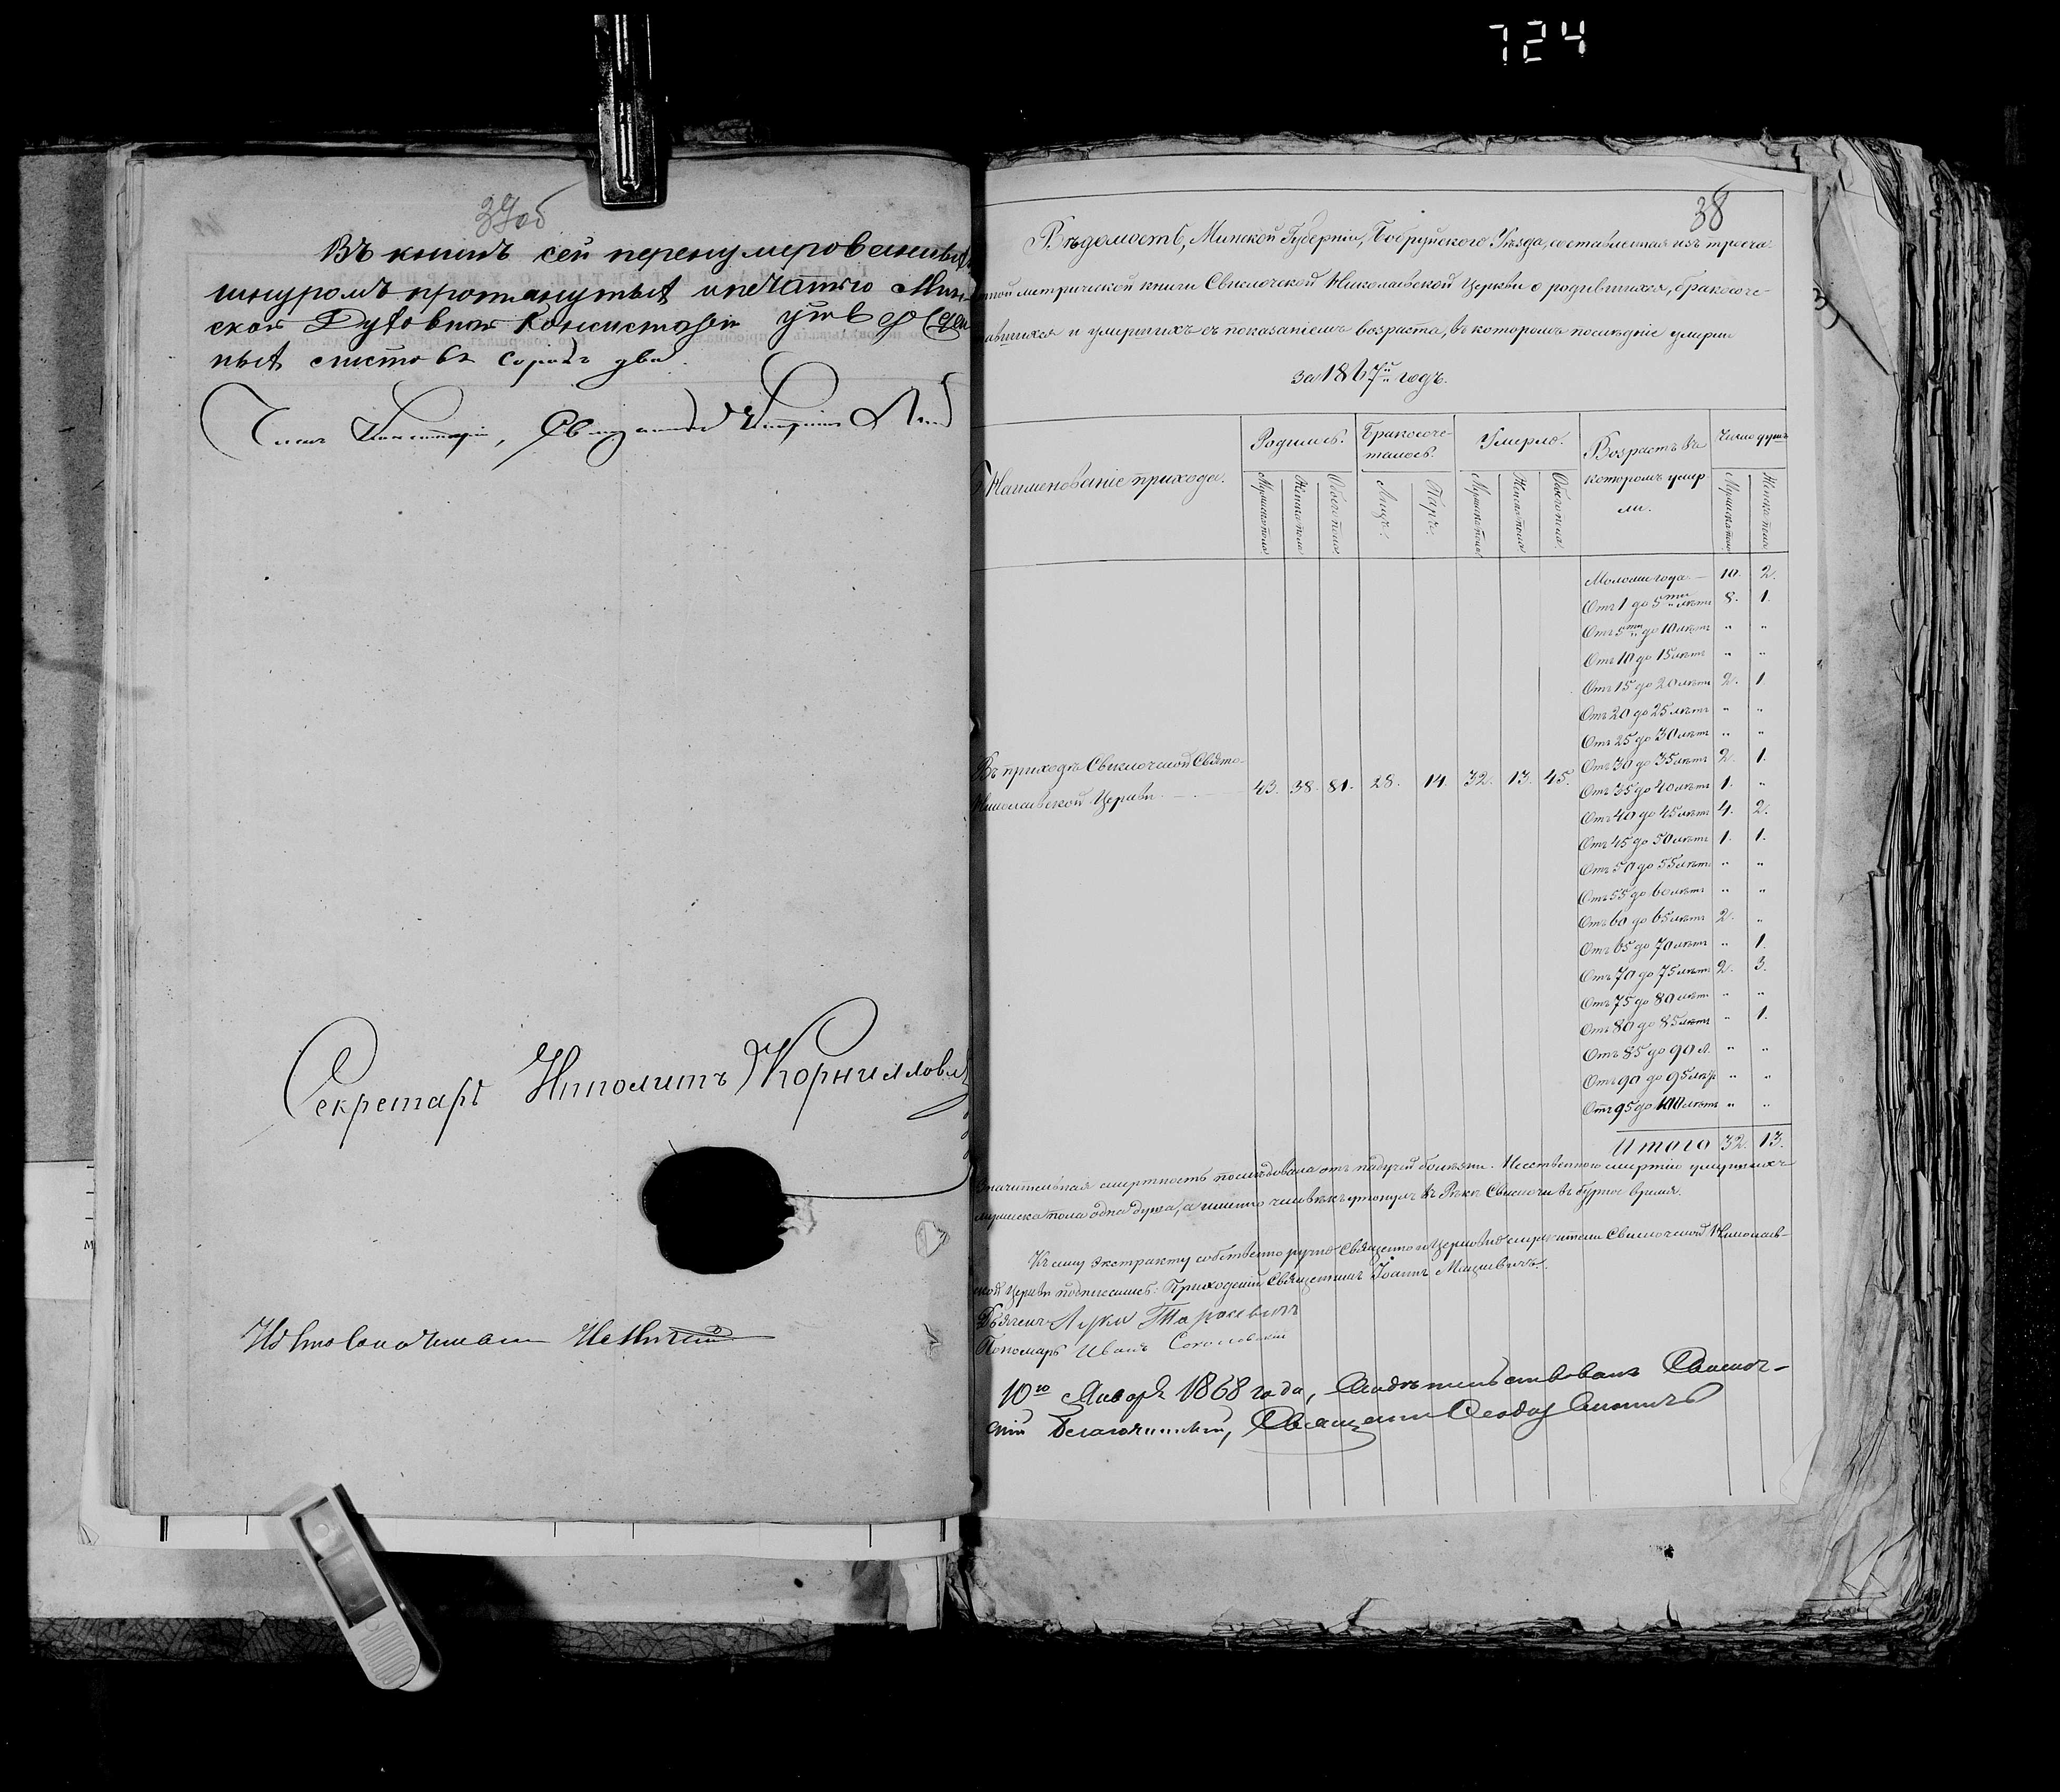 724
37об
Въ книгѣ сей перенумерованныхъ
шнуромъ протянутыхъ и печатью Мин-
ской Духовной Консисторіи утвержден
ныхъ листовъ сорокъ два.
Членъ Консисторіи, Священникъ
Секретарь Ипполитъ Корниллов
38
Вѣдомость, Минской Губерніи, Бобруйского Уѣзда, составленная изъ троеча
тной метрической книги Свислочской Николаевской Церкви о родившихся, бракосоче-
тавшихся и умершихъ съ показаніемъ возраста, въ которомъ послѣдніе умерли
за 1867й годъ.
Наименованіе прихода.
Родилось.
Бракосоче-
талось.
Умерло.
Возрастъ въ
которомъ умер
ли.
Число душъ
Мужска пола
Женска пола
Обоего пола
Лицъ.
Паръ.
Мужска пола
Женска пола
Обоего пола
Мужска пола
Женска пола
Моложе года — 10. 2.
Отъ 1 до 5ти лѣтъ 8. 1.
Отъ 5ти до 10 лѣтъ " "
Отъ 10 до 15 лѣтъ " "
Отъ 15 до 20 лѣтъ 2. 1
Отъ 20 до 25 лѣтъ " "
Отъ 25 до 30 лѣтъ " "
Отъ 30 до 35 лѣтъ 2. 1.
Отъ 35 до 40 лѣтъ 1. "
Отъ 40 до 45 лѣтъ 4. 2.
Отъ 45 до 50 лѣтъ 1. 1.
Отъ 50 до 55 лѣтъ " "
Отъ 55 до 60 лѣтъ " "
Отъ 60 до 65 лѣтъ 2. "
Отъ 65 до 70 лѣтъ " 1.
Отъ 70 до 75 лѣтъ 2. 3.
Отъ 75 до 80 лѣтъ " "
Отъ 80 до 85 лѣтъ " 1.
Отъ 85 до 90 л. " "
Отъ 90 до 95 лѣтъ " "
Отъ 95 до 100 лѣтъ " "
Въ приходѣ Свислочской Свято-
Николаевской Церкви 43. 38. 81. 28. 14. 32. 13. 45.
Итого 32. 13.
Значительная смертность послѣдовала отъ падучей болѣзни. Неестественною смертію умершихъ
мужска пола одна душа, а именно человѣкъ утонулъ въ Рѣкѣ Свислочи въ бурное время.
Къ сему экстракту собственноручно Священно и Церковнослужители Свислочской Николаев-
ской Церкви подписались: Приходскій Священникъ Іоаннъ Мацкевичъ.
Дьячекъ Лука Тарасевичъ
Пономарь Иванъ Соколовскій
10го Января 1868 года, Свидѣтельствовалъ Свислоч-
скій Благочинный, Священникъ